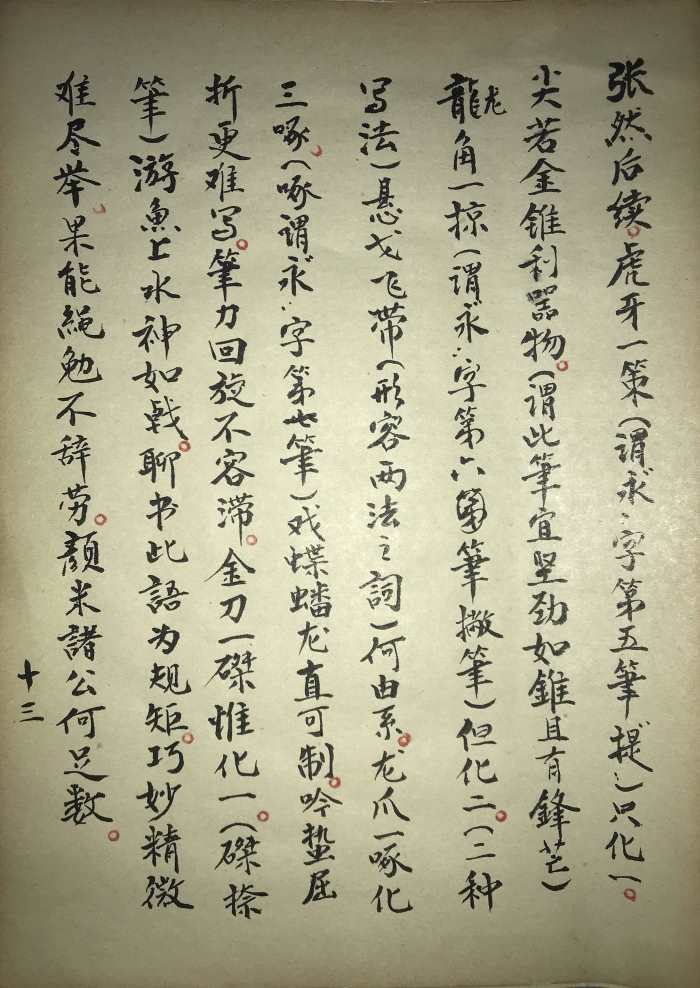 张然后续。虎牙一策(谓“永”字第五筆提)只化一。
尖若金錐利器物。(谓此筆宜坚劲如錐且有鋒芒)
龍龙角一掠(谓“永”字第六筆撇筆)但化二。(二种
写法)悬戈飞带(形容两法之詞)何由系。龙爪一啄化
三啄。(啄谓“永”字第七筆)戏蝶蟠龙直可制。吟蛰屈
折更难写。筆力回旋不容滞。金刀一磔惟化一。(磔捺
筆)游魚上水神如戟。聊书此語为规矩。巧妙精微
难尽举。果能繩勉不辞劳。顏米諸公何足数。
十三